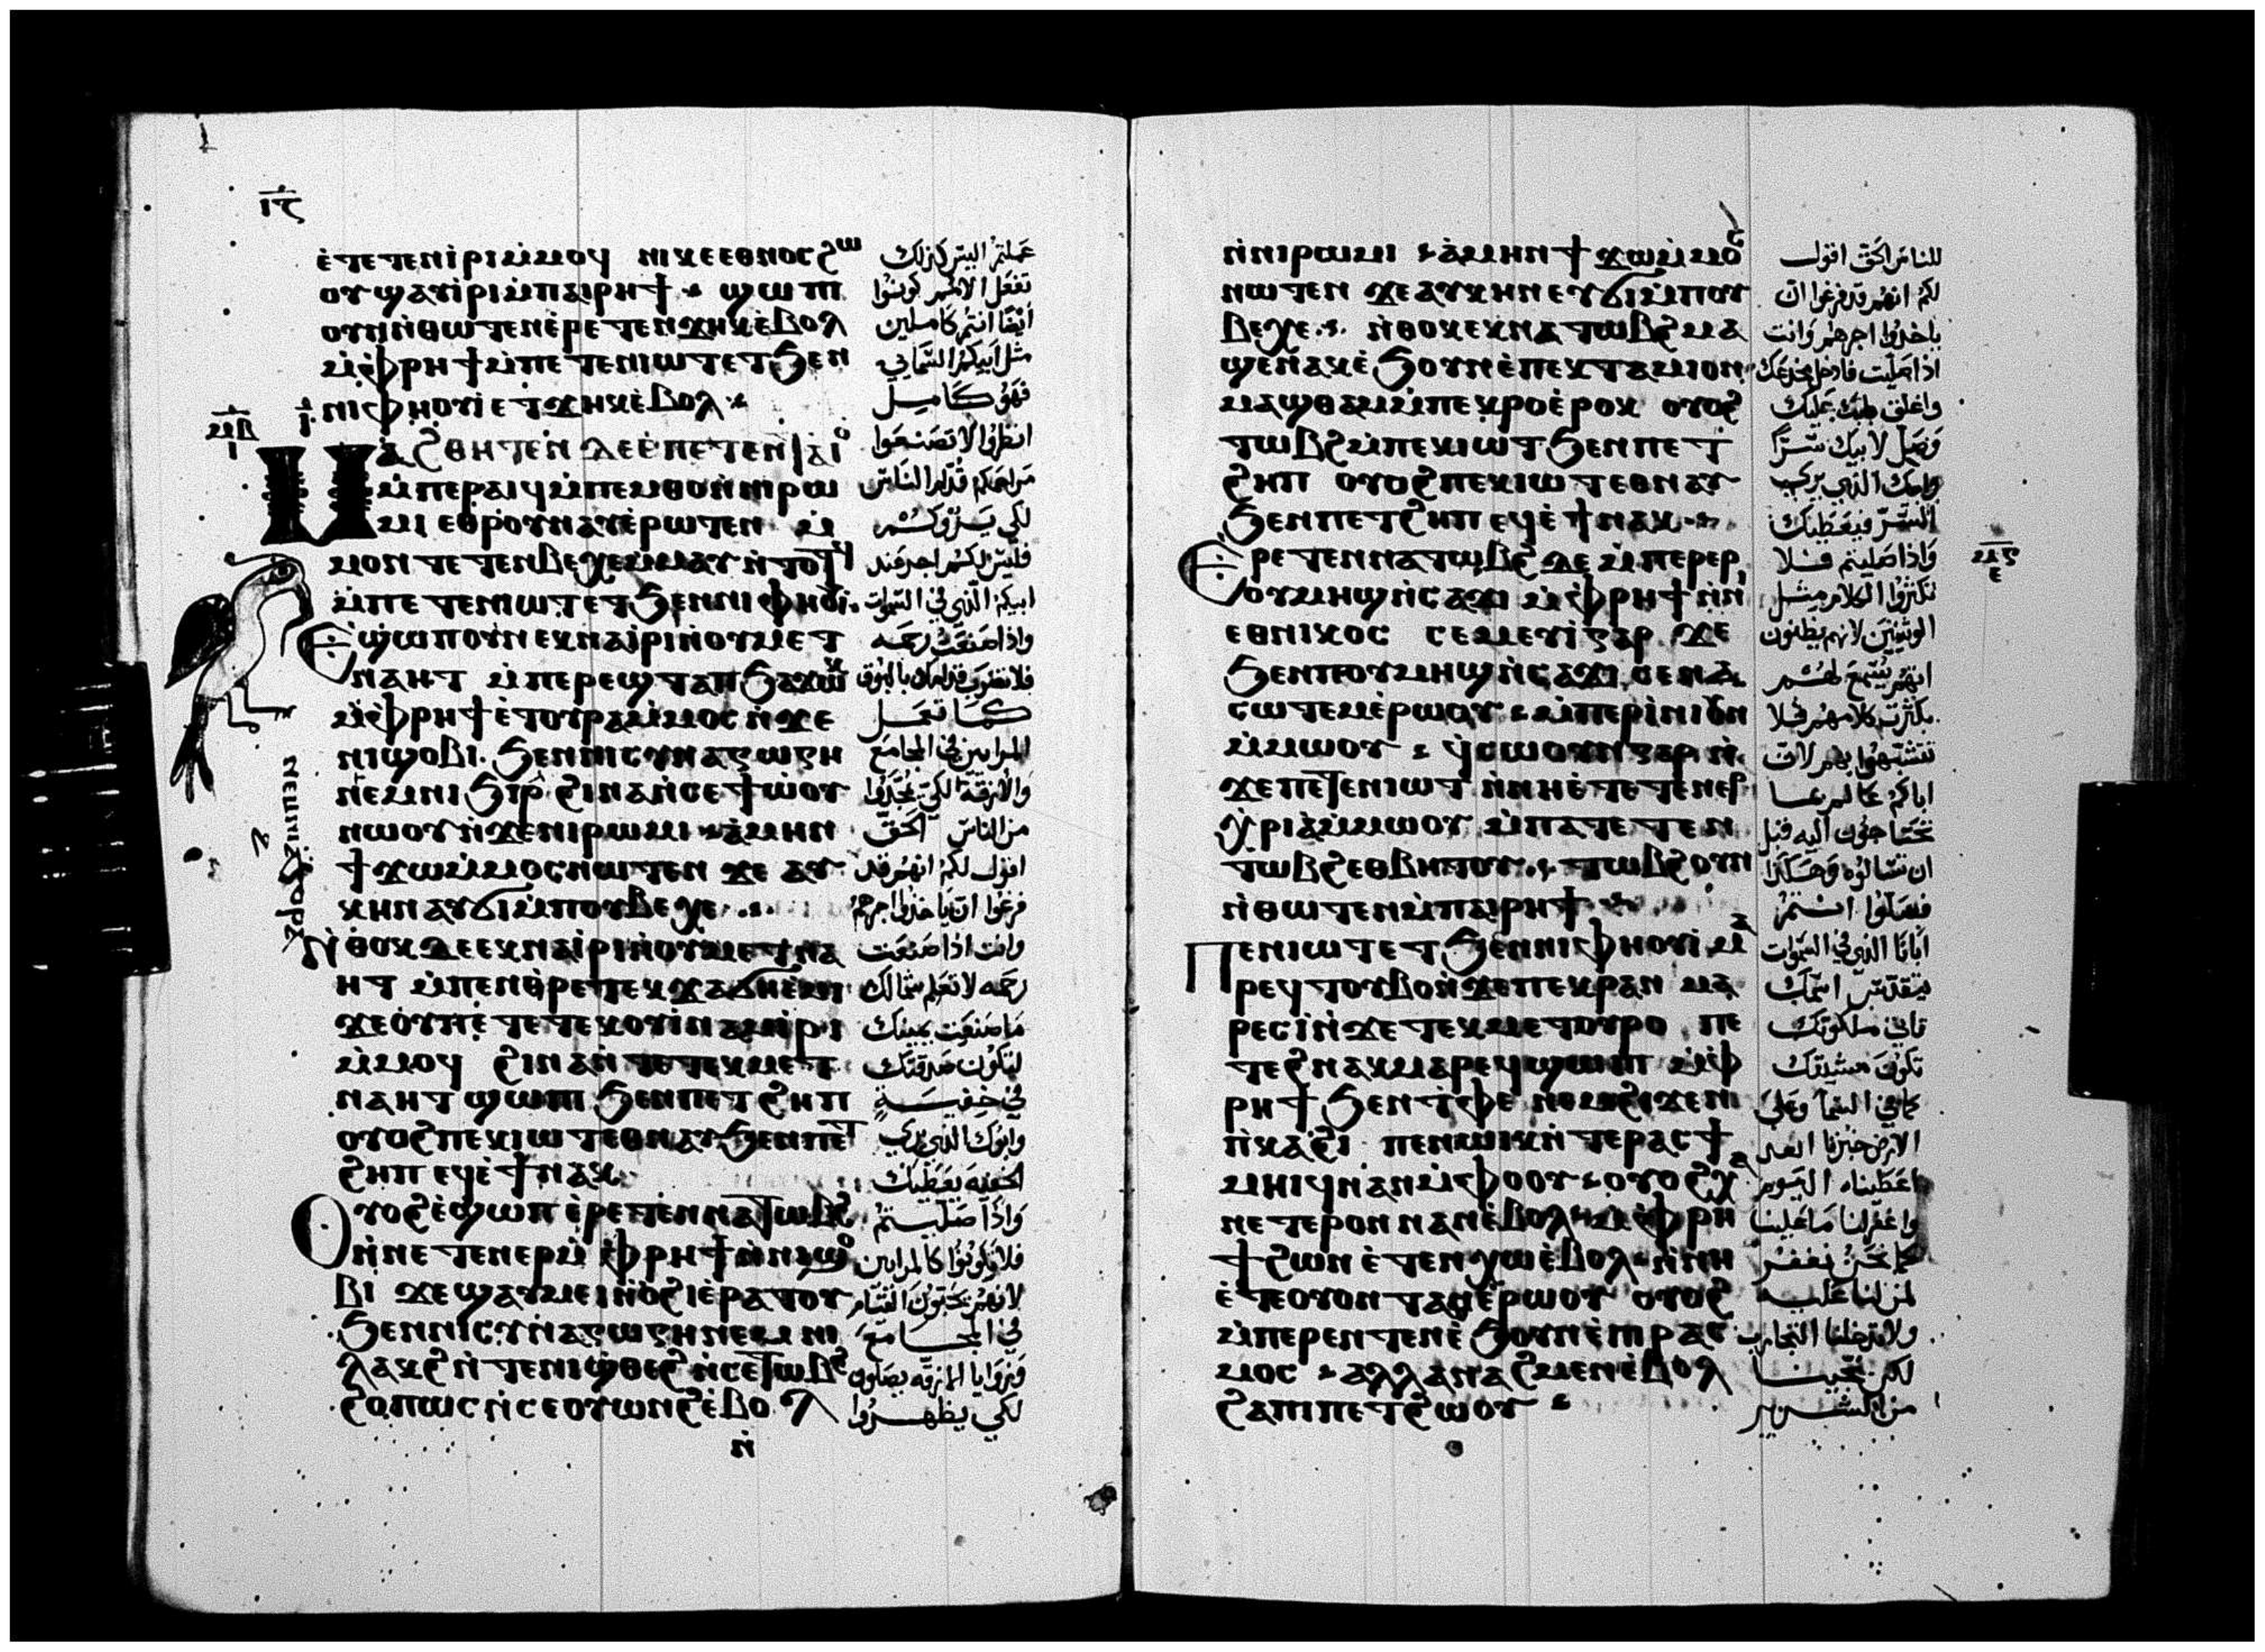 ⲓⲋ
ⲉ̀ⲧⲉⲧⲉⲛⲓ̀ⲣⲓⲙ̀ⲙⲟϥ ⲛⲓⲕⲉⲉⲑⲛⲟⲥϩⲱ
ⲟⲩϣⲁⲩⲓ̀ⲣⲓⲙ̀ⲡⲁⲓⲣⲏϯ ϣⲱⲡⲓ
ⲟⲩⲛⲛ̀ⲑⲱⲧⲉⲛⲉ̀ⲣⲉⲧⲉⲛϫⲏⲕⲉ̀ⲃⲟⲗ
ⲙ̀ⲫ̀ⲣⲏϯⲙ̀ⲡⲉⲧⲉⲛⲓⲱⲧⲉⲧϧⲉⲛ
ⲛⲓⲫⲏⲟⲩⲓ̀ⲉⲧϫⲏⲕⲉ̀ⲃⲟⲗ
ⲙⲃ
ⲓ
ⲙⲁϩⲑⲏⲧⲉⲛ ⲇⲉⲉ̀ⲡⲉⲧⲉⲛⲧⲁⲓⲟ
ⲙ̀ⲡⲉⲣⲁⲓϥⲙ̀ⲡⲉⲙⲑⲟⲛ̀ⲛⲓⲣⲱ
ⲙⲓ ⲉⲑⲣⲟⲩⲛⲁⲩⲉ̀ⲣⲱⲧⲉⲛ ⲙ̀
ⲙⲟⲛⲧⲉⲧⲉⲛⲃⲉⲭⲉⲙ̀ⲙⲁⲩⲛ̀ⲧⲟⲧϥ
ⲙ̀ⲡⲉⲧⲉⲛⲓⲱⲧⲉⲧϧⲉⲛⲛⲓⲫⲏⲟⲩⲓ̀
ⲉ̀ϣⲱⲡⲟⲩⲛⲉⲕⲛⲁⲓ̀ⲣⲓⲛ̀ⲟⲩⲙⲉⲧ
ⲛⲁⲏⲧ ⲙ̀ⲡⲉⲣⲉϣⲧⲁⲡϧⲁϫⲱⲕ
ⲙ̀ⲫ̀ⲣⲏϯⲉ̀ⲧⲟⲩⲣⲁⲙ̀ⲙⲟⲥⲛ̀ϫⲉ
ⲛⲓϣⲟⲃⲓ ϧⲉⲛⲛⲓⲥⲩⲛⲁⲅⲱⲅⲏ
ⲛⲉⲙⲛⲓϧⲓⲣ ϩⲓⲛⲁⲛ̀ⲥⲉϯⲱ̀ⲟⲩ
ⲛⲱⲟⲩⲛ̀ϫⲉⲛⲓⲣⲱⲙⲓ ⲁ̀ⲙⲏⲛ
ϯϫⲱⲙ̀ⲙⲟⲥⲛⲱⲧⲉⲛ ϫⲉ ⲁⲩ
ⲕⲏⲛ ⲁⲩϭⲓⲙ̀ⲡⲟⲩⲃⲉⲭⲉ
ⲛ̀ⲑⲟⲕⲇⲉⲉⲕⲛⲁⲓ̀ⲣⲓⲛ̀ⲟⲩⲙⲉⲧⲛⲁ
ⲏⲧ ⲙ̀ⲡⲉⲛⲑⲣⲉⲧⲉⲕϫⲁϭⲏⲉⲙⲓ
ϫⲉⲟⲩⲡⲉⲧⲉⲧⲉⲕⲟⲩⲓ̀ⲛⲁⲙⲓ̀ⲣⲓ
ⲙ̀ⲙⲟϥ ϩⲓⲛⲁⲛ̀ⲧⲉⲧⲉⲕⲙⲉⲧ
ⲛⲁⲏⲧϣⲱⲡⲓϧⲉⲛⲡⲉⲧϩⲏⲡ
ⲟⲩⲟϩⲡⲉⲕⲓⲱⲧⲉⲑⲛⲁⲩϧⲉⲛⲡⲉⲧ
ϩⲏⲡ ⲉϥⲉ̀ϯⲛⲁⲕ
ⲟⲩⲟϩⲉ̀ϣⲱⲡ ⲉ̀ⲣⲉⲧⲉⲛⲛⲁⲧⲱⲃϩ
ⲛ̀ⲛⲉⲧⲉⲛⲉⲣⲙ̀ⲫ̀ⲣⲏϯⲛ̀ⲛⲓϣⲟ
ⲃⲓ ϫⲉϣⲁⲩⲙⲉⲓⲛ̀ⲟϩⲓⲉ̀ⲣⲁⲧⲟⲩ
ϧⲉⲛⲛⲓⲥⲩⲛⲁⲅⲱⲅⲏⲛⲉⲙⲛⲓ
ⲗⲁⲕϩⲛ̀ⲧⲉⲛⲓϣ̀ⲑⲉϩⲛ̀ⲥⲉⲧⲱⲃϩ
ϩⲟⲡⲱⲥⲛ̀ⲥⲉⲟⲩⲱⲛϩⲉ̀ⲃⲟⲗ
ⲛ̀
عملتم اليس كذلك
تفعل الامم كونوا
ايضا انتم كاملين
مثل ابيكم السماي
فهو كامل
انظروا لا تصنعوا
مراحمكم قدام الناس
لكي يروكم
فليس لكم اجر عند
ابيكم الذي في السموات
واذا صنعت رحمه
فلا تضرب قدامك بالبوق
كما تفعل
المرايين في المجامع
والازقه لكي يمجدوا
من الناس الحق
اقول لكم انهم قد
فرغوا ان ياخذوا اجرهم
وانت اذا صنعت
رحمه لا تعلم شمالك
ما صنعت يمينك
لتكون صدقتك
في خفيه
وابوك الذي يري
الخفيه يعطيك
واذا صليتم
فلا تكونوا كالمرايين
لانهم يحبون القيام
في المجامع
وزوايا الازقه يصلون
لكي يظهروا
ⲛ̀ⲛⲓⲣⲱⲙⲓ ⲁ̀ⲙⲏⲛϯϫⲱⲙ̀ⲙⲟⲥ
ⲛⲱⲧⲉⲛ ϫⲉⲁⲩⲕⲏⲛⲉⲩϭⲓⲙ̀ⲡⲟⲩ
ⲃⲉⲭⲉ ⲛ̀ⲑⲟⲕⲉⲕⲛⲁⲧⲱⲃϩⲙⲁ
ϣⲉⲛⲁⲕⲉ̀ϧⲟⲩⲛⲉ̀ⲡⲉⲕⲧⲁⲙⲓⲟⲛ
ⲙⲁϣⲑⲁⲙⲙ̀ⲡⲉⲕⲣⲟⲉ̀ⲣⲟⲕ ⲟⲩⲟϩ
ⲧⲱⲃϩⲙ̀ⲡⲉⲕⲓⲱⲧϧⲉⲛⲡⲉⲧ
ϩⲏⲡ ⲟⲩⲟϩⲡⲉⲕⲓⲱⲧⲉⲑⲛⲁⲩ
ϧⲉⲛⲡⲉⲧϩⲏⲡ ⲉϥⲉ̀ϯⲛⲁⲕ
ⲙⲋ
ⲉ
ⲉ̀ⲣⲉⲧⲉⲛⲛⲁⲧⲱⲃϩ ⲇⲉ ⲙ̀ⲡⲉⲣⲉⲣ
ⲟⲩⲙⲏϣⲛ̀ⲥⲁϫⲓ ⲙ̀ⲫ̀ⲣⲏϯⲛ̀ⲛⲓ
ⲉⲑⲛⲓⲕⲟⲥ ⲥⲉⲙⲉⲩⲓ̀ⲅⲁⲣ ϫⲉ
ϧⲉⲛⲡⲟⲩⲙⲏϣⲛ̀ⲥⲁϫⲓ ⲥⲉⲛⲁ
ⲥⲱⲧⲉⲙⲉ̀ⲣⲱⲟⲩ ⲙ̀ⲡⲉⲣⲓ̀ⲛⲓⲟⲩⲛ
ⲙ̀ⲙⲱⲟⲩ ϥ̀ⲥⲱⲟⲩⲛⲅⲁⲣ ⲛ̀
ϫⲉⲡⲉⲧⲉⲛⲓⲱⲧ ⲛ̀ⲛⲏⲉ̀ⲧⲉⲧⲉⲛⲉⲣ
ⲭ̀ⲣⲓⲁⲙ̀ⲙⲱⲟⲩ ⲙ̀ⲡⲁⲧⲉⲧⲉⲛ
ⲧⲱⲃϩⲉⲑⲃⲏⲧⲟⲩ ⲧⲱⲃϩⲟⲩⲛ
ⲛ̀ⲑⲱⲧⲉⲛⲙ̀ⲡⲁⲓⲣⲏϯ
ⲡⲉⲛⲓⲱⲧⲉⲧϧⲉⲛⲛⲓⲫⲏⲟⲩⲓ̀ ⲙⲁ
ⲣⲉϥⲧⲟⲩⲃⲟⲛ̀ϫⲉⲡⲉⲕⲣⲁⲛ ⲙⲁ
ⲣⲉⲥⲓ̀ⲛ̀ϫⲉⲧⲉⲕⲙⲉⲧⲟⲩⲣⲟ ⲡⲉ
ⲧⲉϩⲛⲁⲕⲙⲁⲣⲉϥϣⲱⲡⲓ ⲙ̀ⲫ̀
ⲣⲏϯϧⲉⲛⲧ̀ⲫⲉ ⲛⲉⲙϩⲓϫⲉⲛ
ⲡⲓⲕⲁϩⲓ ⲡⲉⲛⲱⲓⲕⲛ̀ⲧⲉⲣⲁⲥϯ
ⲙⲏⲓϥⲛⲁⲛⲙ̀ⲫⲟⲟⲩ ⲟⲩⲟϩⲭⲁ
ⲛⲉⲧⲉⲣⲟⲛ ⲛⲁⲛⲉ̀ⲃⲟⲗ ⲙ̀ⲫ̀ⲣⲏ
ϯϩⲱⲛ ⲉ̀ⲧⲉⲛⲭⲱⲉ̀ⲃⲟⲗ ⲛ̀ⲛⲏ
ⲉ̀ⲧⲉⲟⲩⲟⲛⲧⲁⲛⲉ̀ⲣⲱⲟⲩ ⲟⲩⲟϩ
ⲙ̀ⲡⲉⲣⲉⲛⲧⲉⲛⲉ̀ϧⲟⲩⲛⲉ̀ⲡⲓⲣⲁⲥ
ⲙⲟⲥ ⲁⲗⲗⲁⲛⲁϩⲙⲉⲛⲉ̀ⲃⲟⲗ
ϩⲁⲡⲓⲡⲉⲧϩⲱⲟⲩ
للناس الحق اقول
لكم انهم قد فرغوا ان
ياخذوا اجرهم وانت
اذا صليت فادخل مخدعك
واغلق بابك عليك
وصل لابيك سرا
وابوك الذي يري
السر فيعطيك
واذا صليتم فلا
تكثروا الكلام مثل
الوثنيين لانهم يظنون
انهم يستمع لهم
بكثرة كلامهم فلا
تتشبهوا بهم لان
اباكم عالم بما
تحتاجون اليه قبل
ان تسالوه وهكذا
فصلوا انتم
ابانا الذي في السموات
يتقدس اسمك
تاتي ملكوتك
تكون مشيتك
كما في السما وعلي
الارض خبزنا الغد
اعطيناه اليوم
واغفر لنا ما علينا
كما نحن نغفر
لمن لنا عليه
ولا تدخلنا التجارب
لكن نجينا
من الشرير